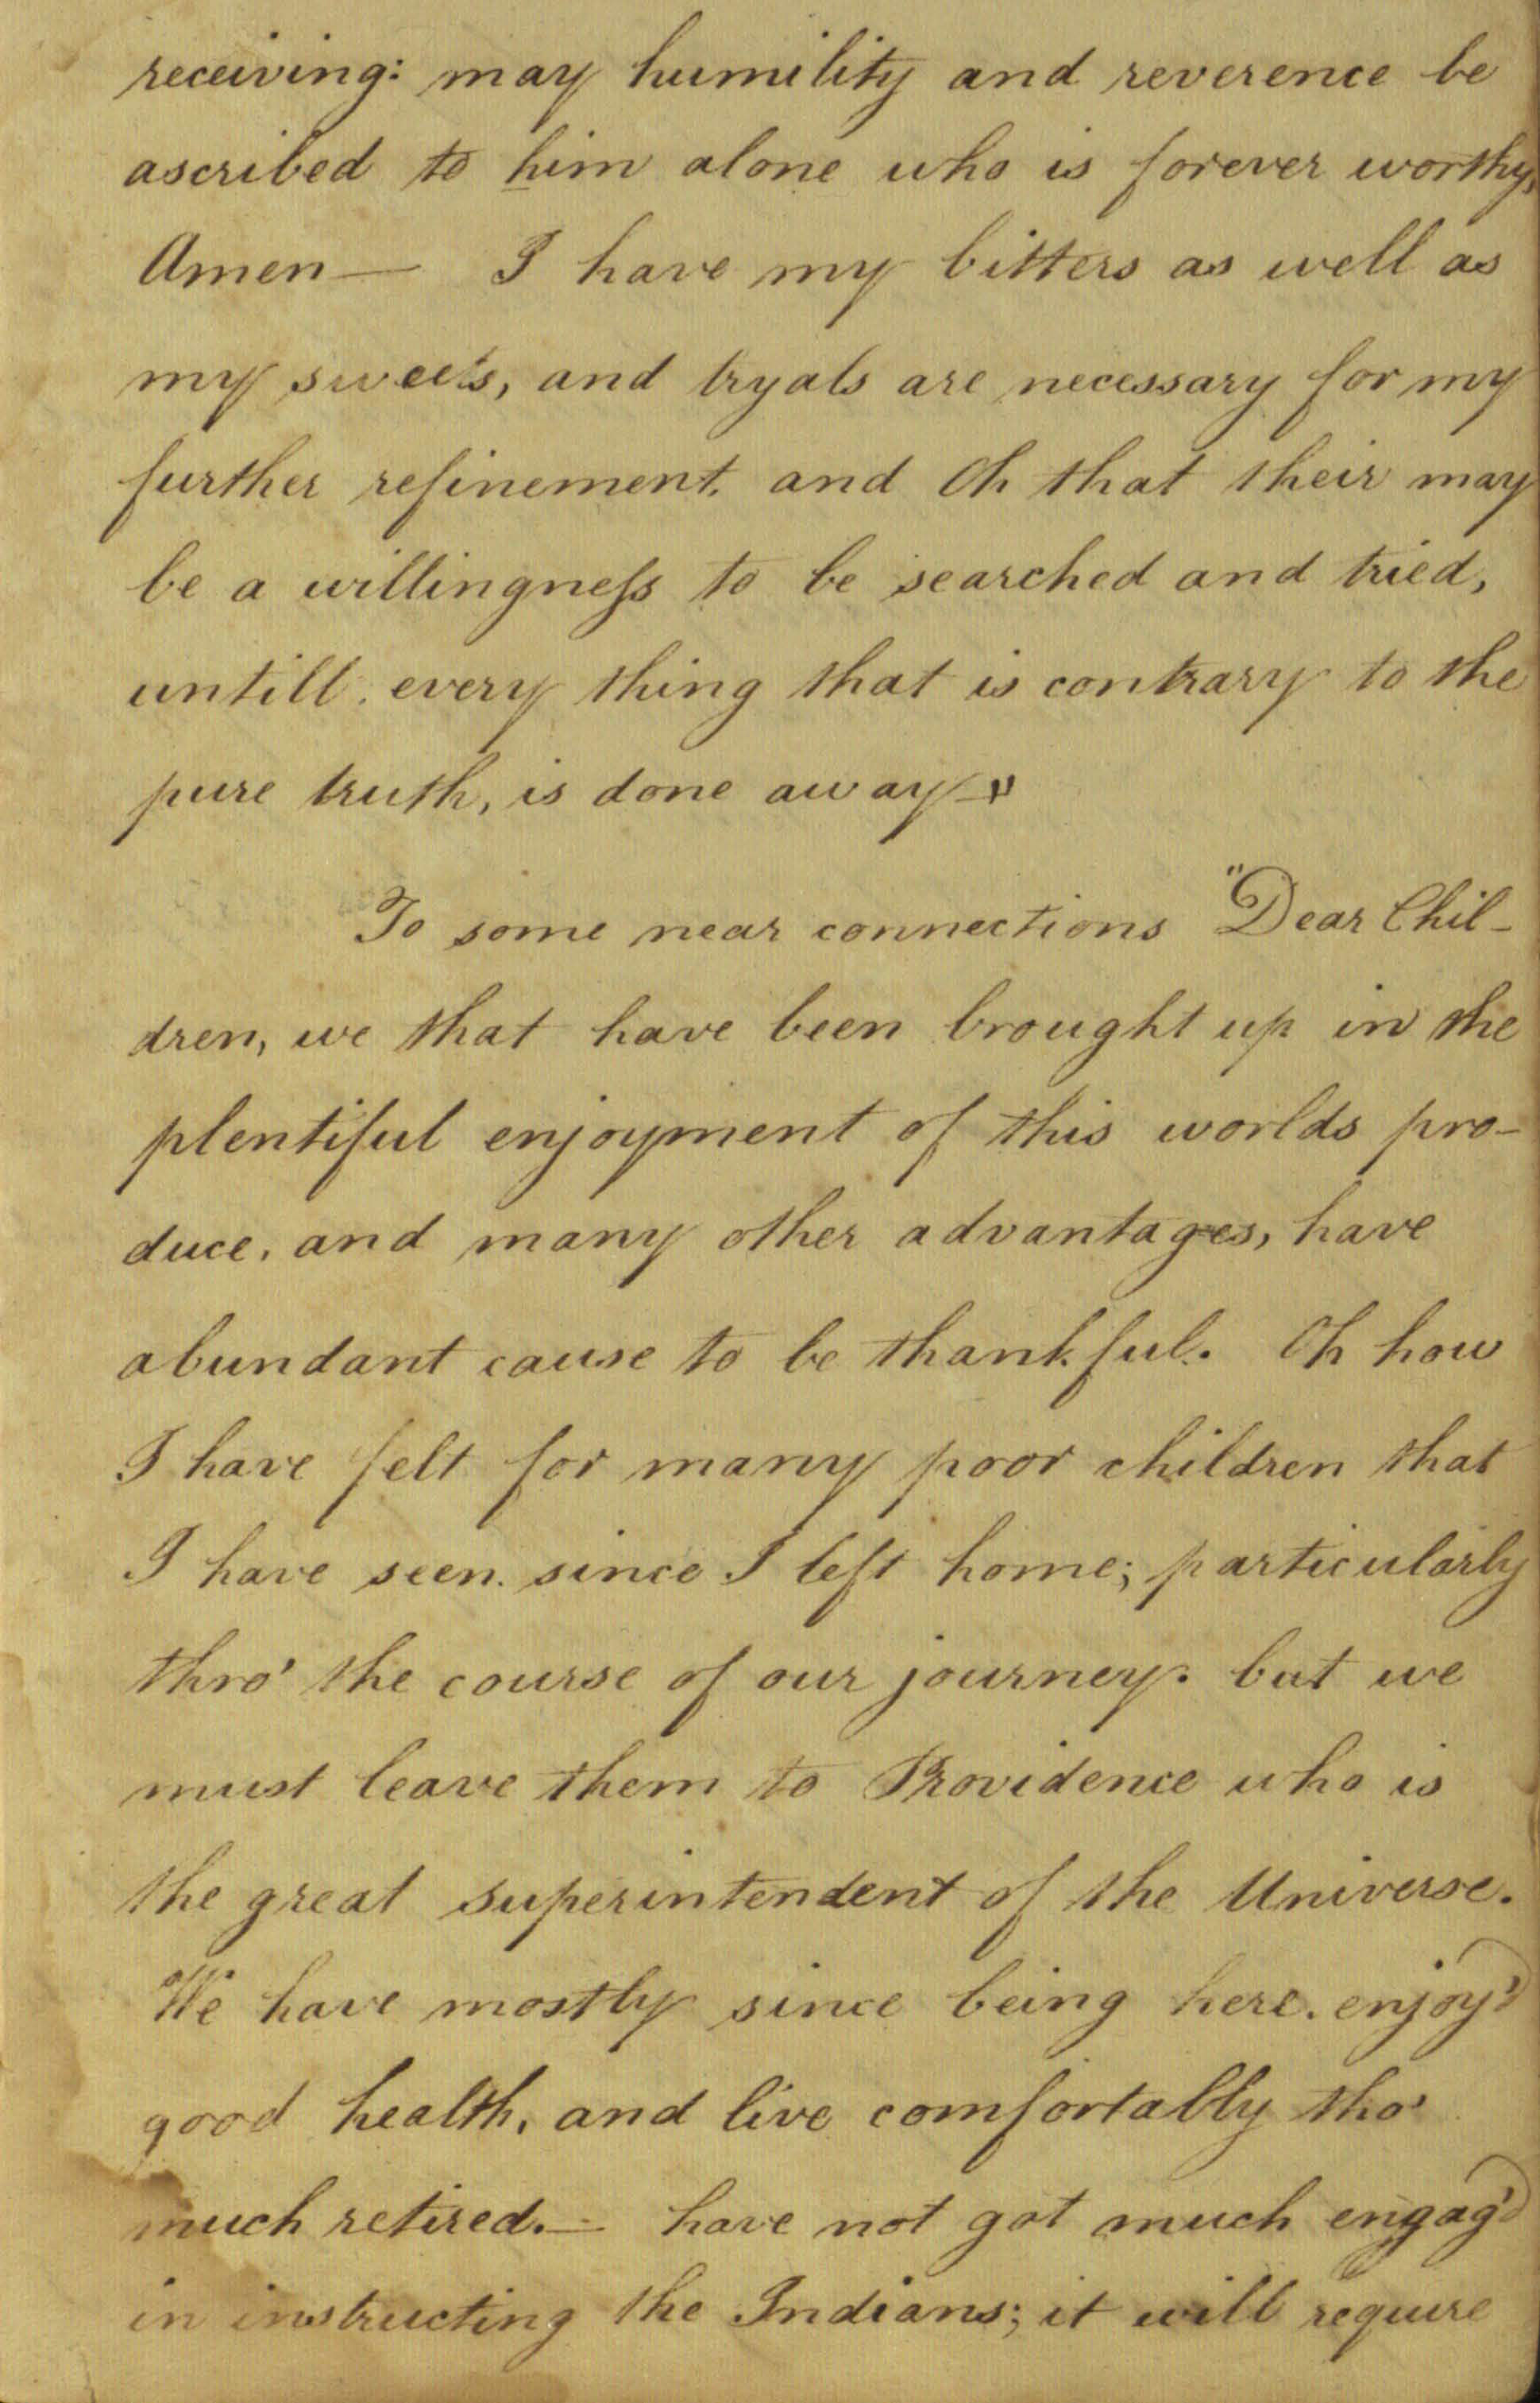 receiving: may humility and reverence be
ascribed to him alone who is forever worthy,
Amen— I have my bitters as well as
my sweets, and tryals are necessary for my
further refinement, and Oh that their may
be a willingneſs to be searched and tried,
untill every thing that is contrary to the
pure truth, is done away—"
To some near connections "Dear Chil-
dren, we that have been brought up in the
plentiful enjoyment of this worlds pro-
duce, and many other advantages, have
abundant cause to be thankful. Oh how
I have felt for many poor children that
I have seen since I left home; particularly
thro' the course of our journey. but we
must leave them to Providence who is
the great superintendent of the Universe.
We have mostly since being here, enjoy'd
good health, and live comfortably tho'
much retired.— have not got much engag'd
in instructing the Indians; it will require